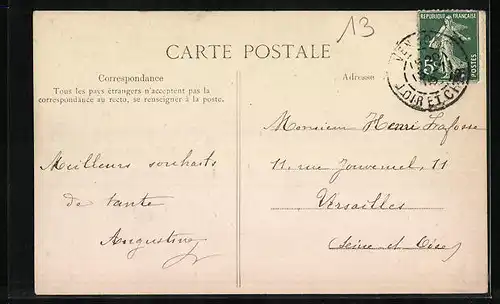 13
CARTE POSTALE
Correspondance
Tous les pays étrangers n'acceptent pas la
correspondance au recto, se renseigner à la poste.
Adresse
REPUBLIQUE FRANÇAISE
5c
POSTES
LOIR ET CHER
Meilleurs souhaits
de tante
Augustine
Monsieur Henri Lafosse
11, rue Jouvencel, 11
Versailles
(Seine et Oise)